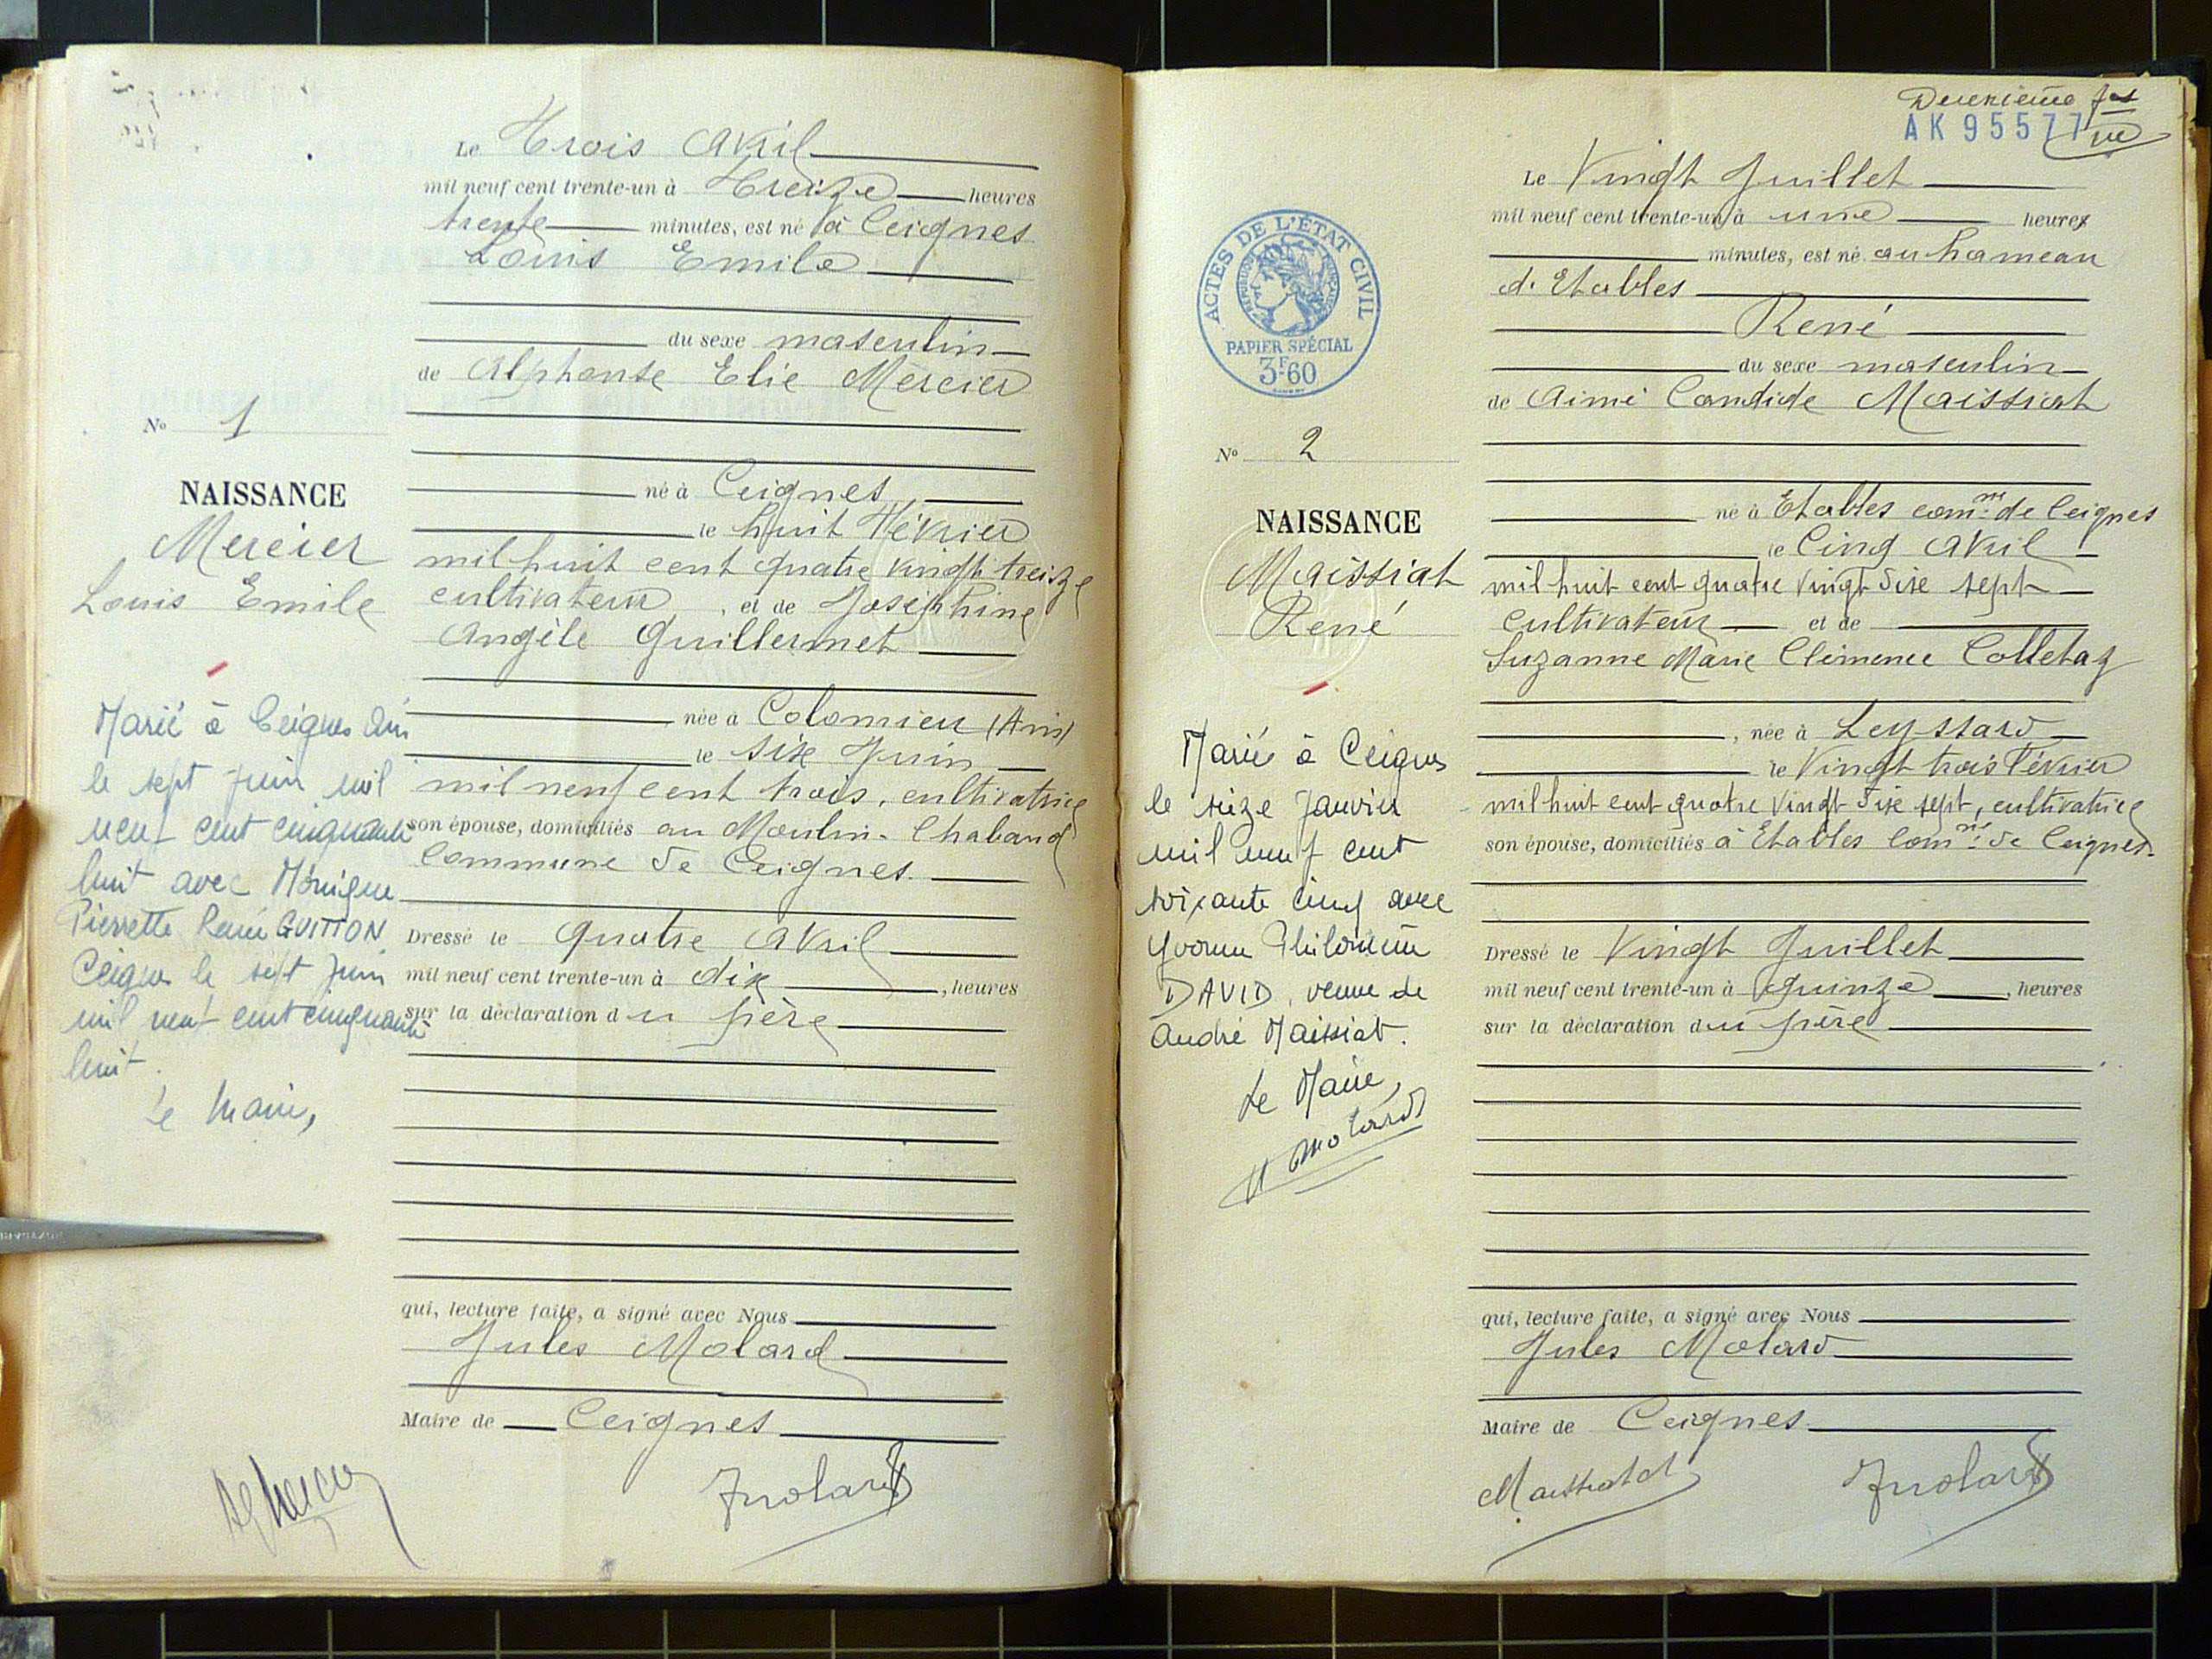 Le Trois Avril
mil neuf cent trente-un à Treize heures
trente minutes, est né à Ceignes
Louis Emile
du sexe masculin
de Alphonse Elie Mercier
né à Ceignes
le huit Février
mil huit cent quatre vingt treize
cultivateur, et de Joséphine
Angèle Guillermet
née à Colomieu (Ain)
le six Juin
mil neuf cent trois, cultivatrice
son épouse, domiciliés au Moulin-Chabaud
Commune de Ceignes.
Dressé le quatre Avril
mil neuf cent trente-un à dix, heures
sur la déclaration du père
qui, lecture faite, a signé avec Nous
Jules Molard
Maire de Ceignes
No 1
NAISSANCE
Mercier
Louis Emile
Marié à Ceignes Ain
le sept juin mil
neuf cent cinquante
huit avec Monique
Pierrette Renée GUITTON
Ceignes le sept Juin
mil neuf cent cinquante
huit.
Le Maire,
JMolard
Deuxième
AK 95577
Le Vingt Juillet
mil neuf cent trente-un à une heures
minutes, est né au hameau
d'Etables
René
du sexe masculin
de Aimé Candide Maissiat
né à Etables comne de Ceignes
le Cinq Avril
mil huit cent quatre vingt dix sept
Cultivateur et de
Suzanne Marie Clémence Colletaz
, née à Leyssard
le Vingt trois Février
mil huit cent quatre vingt dix sept, cultivatrice
son épouse, domiciliés à Etables comne de Ceignes.
Dressé le Vingt Juillet
mil neuf cent trente-un à Quinze, heures
sur la déclaration du père
qui, lecture faite, a signé avec Nous
Jules Molard
Maire de Ceignes
ACTES DE L'ÉTAT CIVIL
RÉPUBLIQUE FRANÇAISE
PAPIER SPÉCIAL
3F60
No 2
NAISSANCE
Maissiat
René
Marié à Ceignes
le seize Janvier
mil neuf cent
soixante cinq avec
Yvonne Philomène
DAVID, veuve de
André Maissiat.
Le Maire,
Molard
Maissiat
JMolard